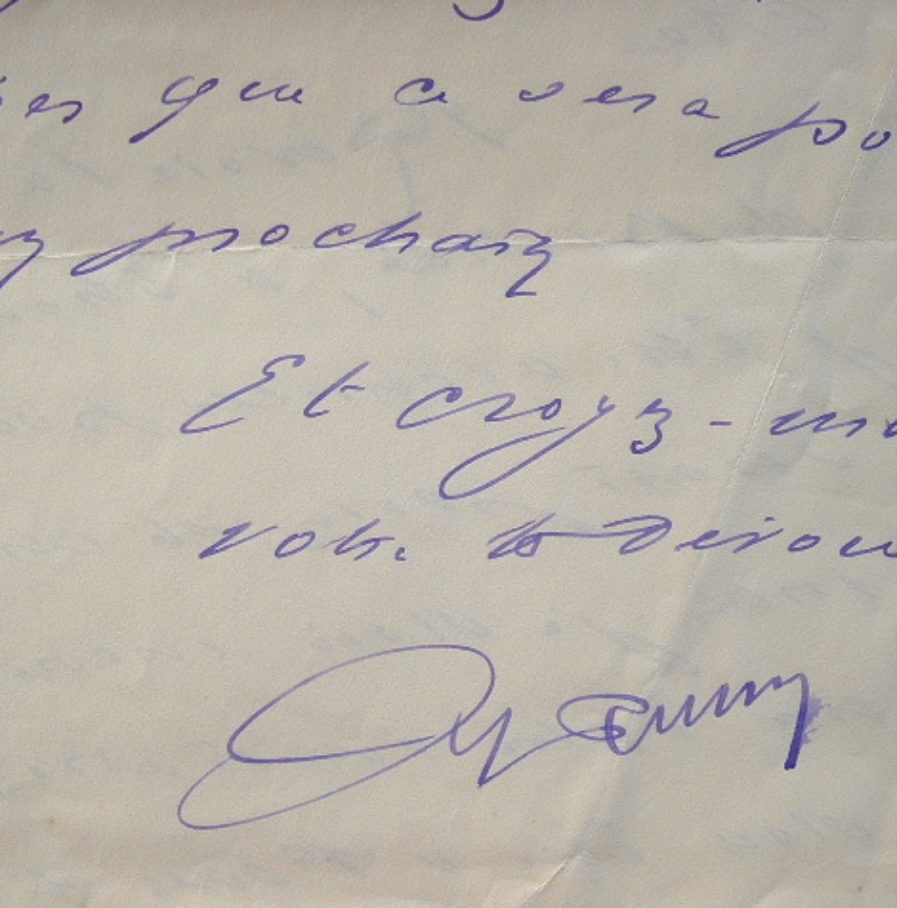 que ce sera po
prochain
Et croyez-mo
votr. tt Dévou